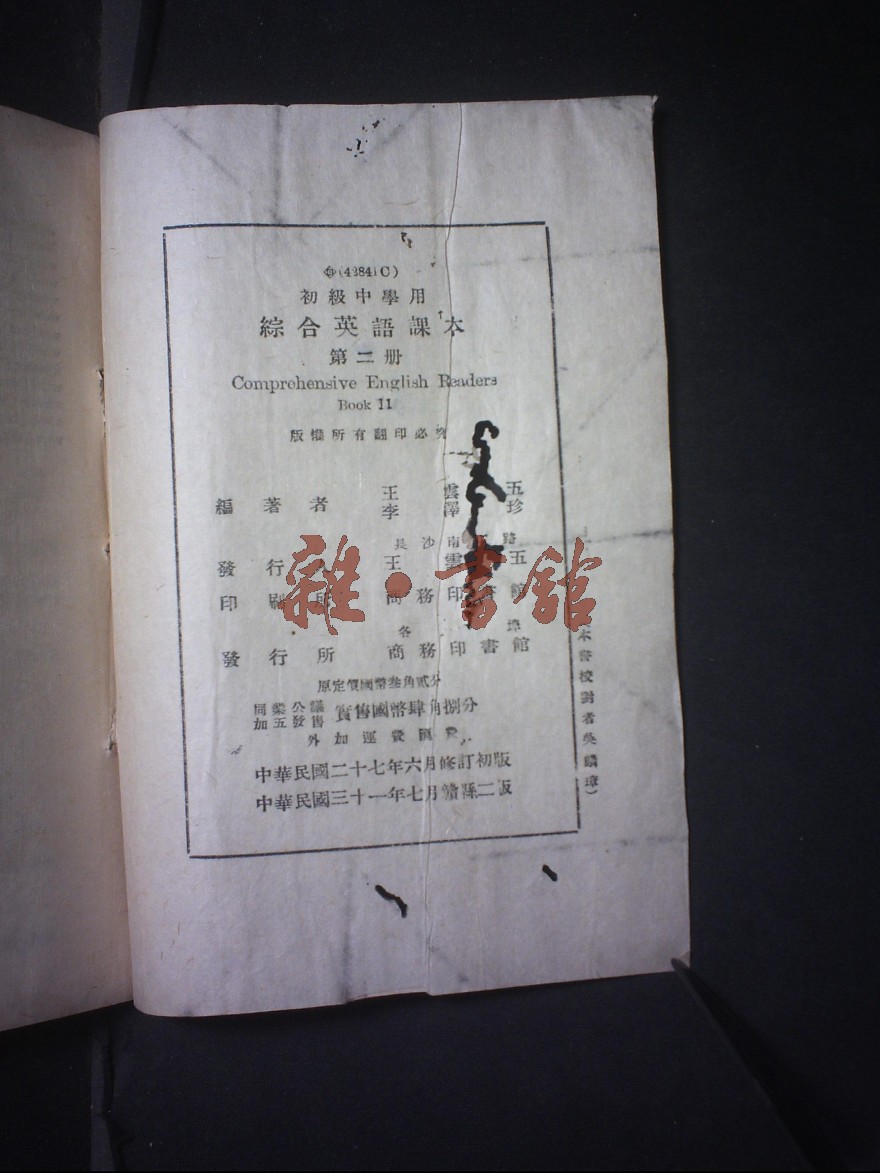 (42841C)
初級中學用
綜合英語課本
第二册
Comprehensive English Readers
Book 11
版權所有翻印必究
編著者 王雲五
李澤珍
長沙南 路
發行 王雲五
印刷所 商務印書館
各埠
發行所 商務印書館
原定價國幣叁角貳分
同業公議
加五發售 實售國幣肆角捌分
外加運費匯費
中華民國二十七年六月修訂初版
中華民國三十一年七月贛縣二版
本書校對者吳麟璋)
雜·書館